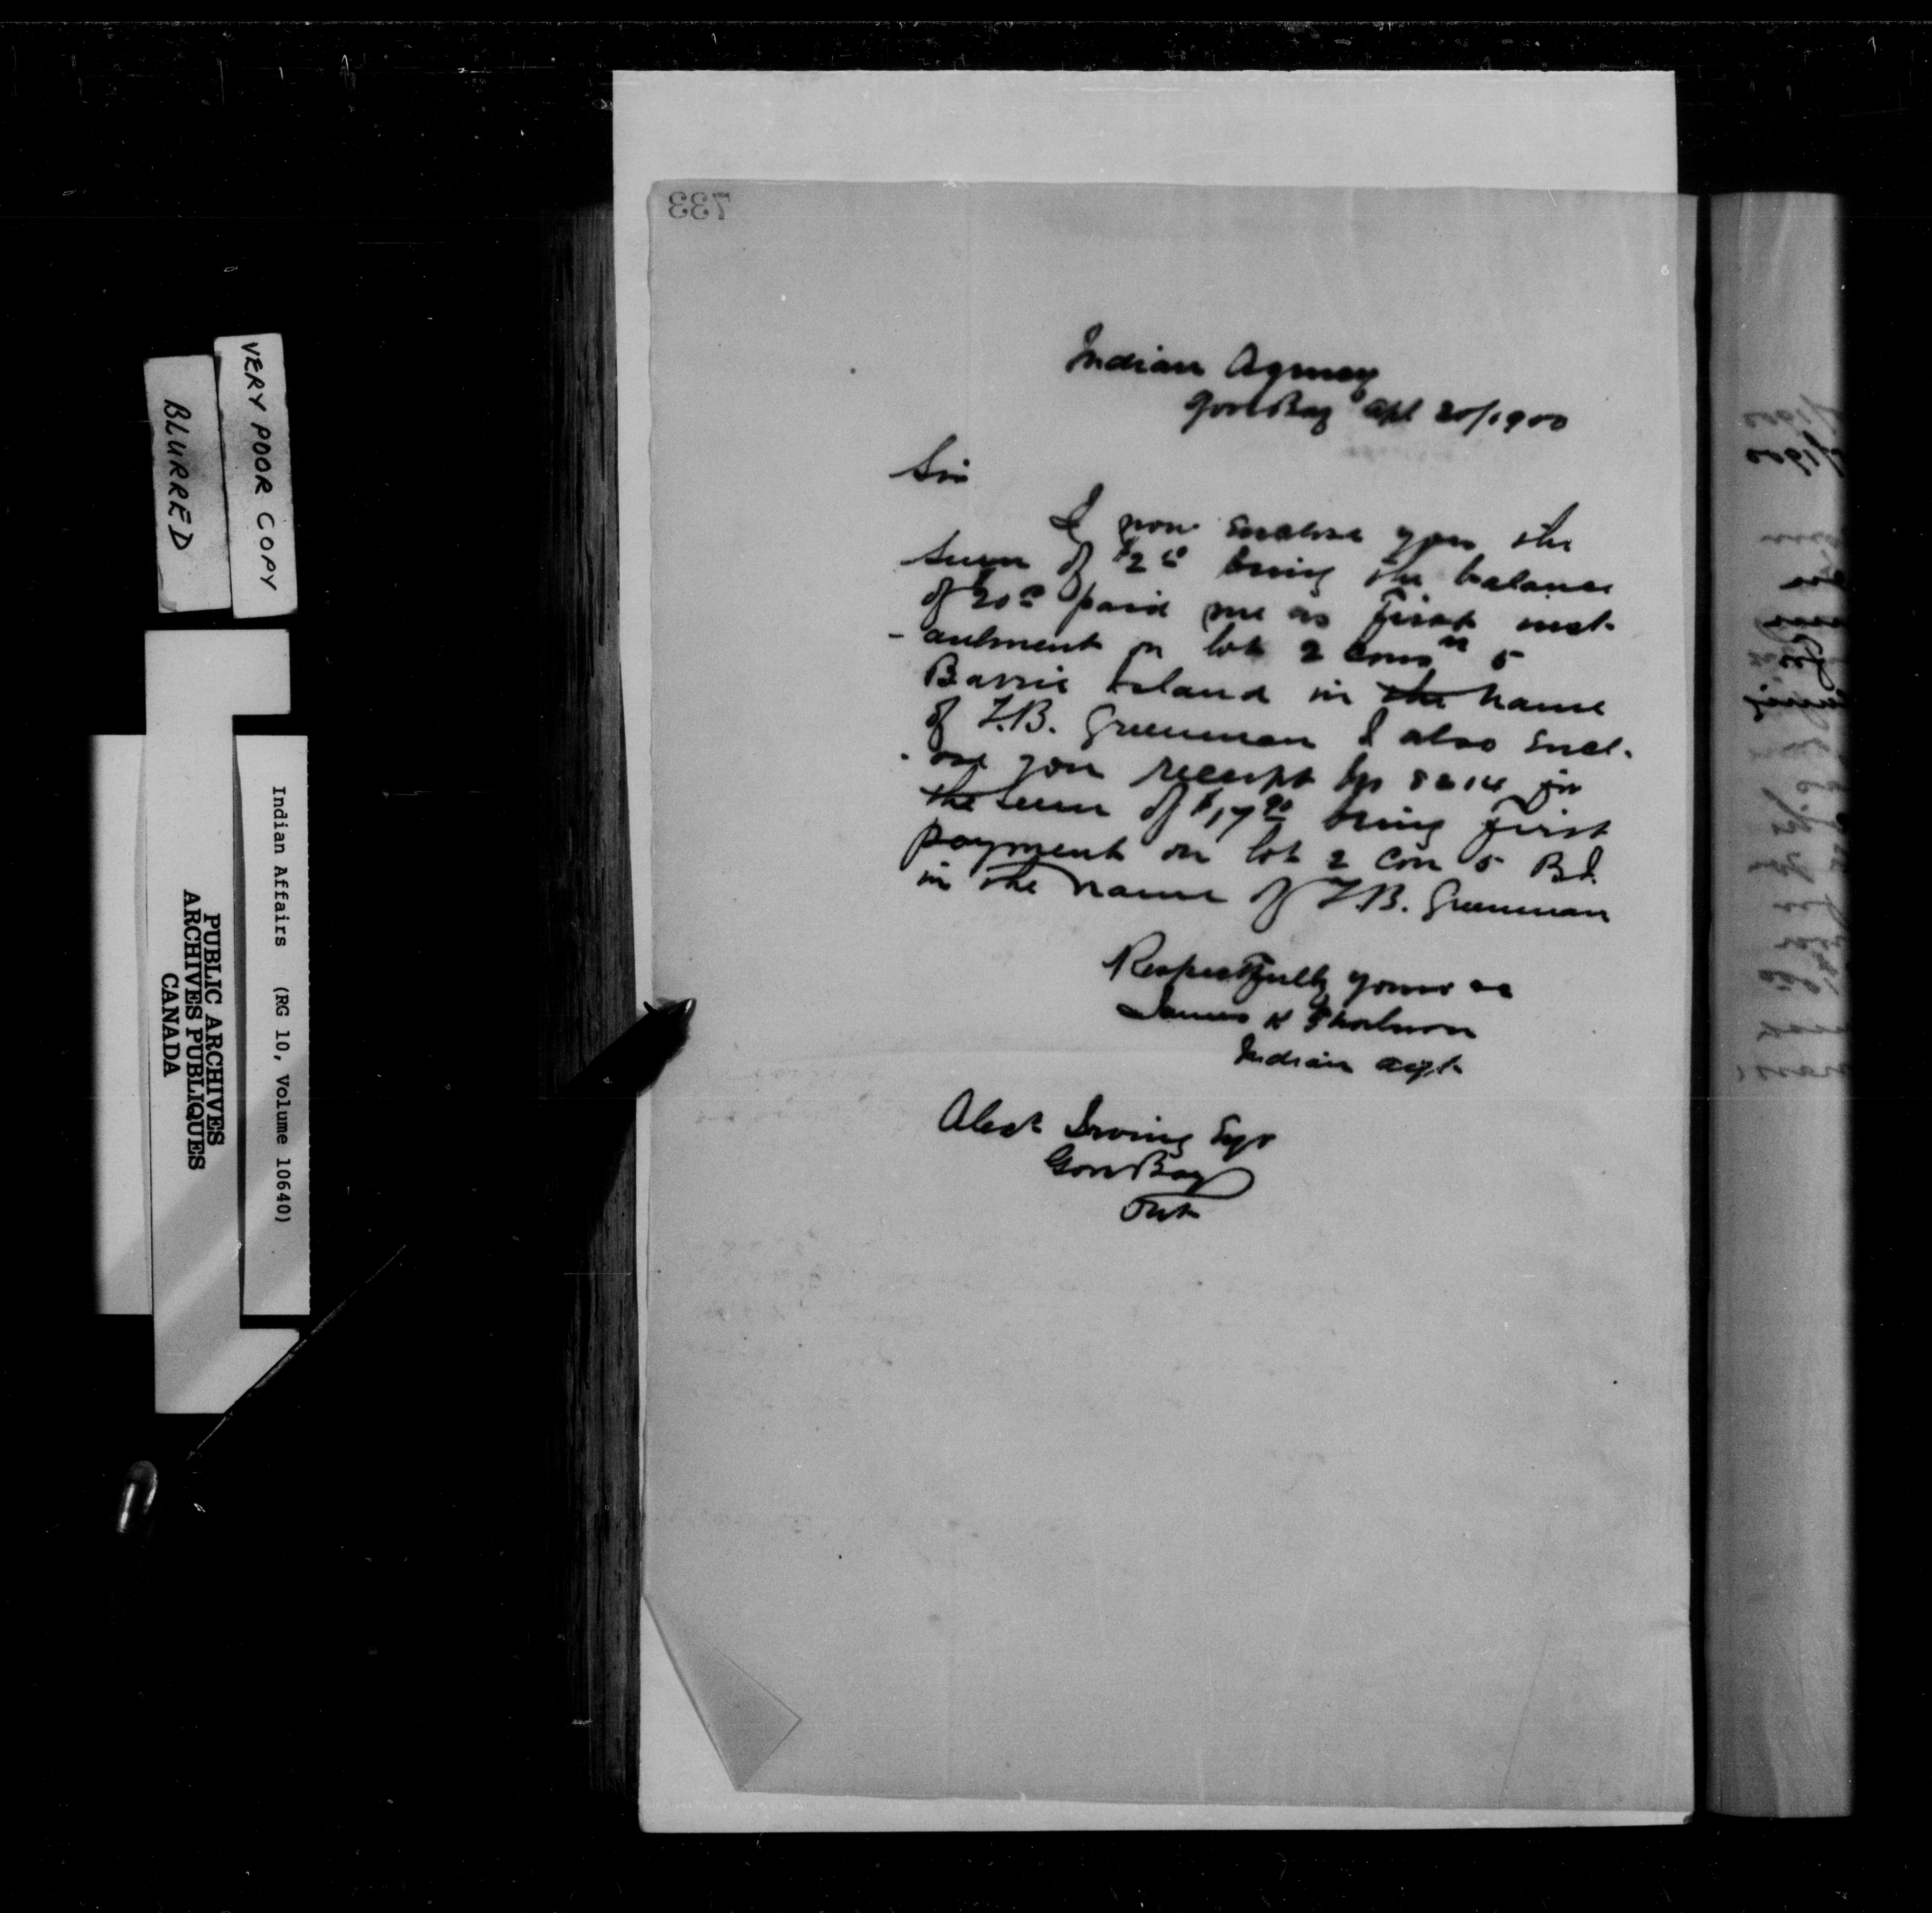 733
Indian Agency
Gore Bay Apl 20/1900
Sir
I now Enclose you the
sum of $2.10 being the balance
of $20.00 paid me as first inst-
- aulment on lot 2 Con 5
Barrie Island in the name
of F.B. Greenman I also Encl-
- ose you receipt for
the sum of $17.90 being first
payment on lot 2 Con 5 B.I.
in the name of F.B. Greenman
Respectfully yours
James
Indian Agt.
Alex Irving Esqr
Gore Bay
Ont
VERY POOR COPY
BLURRED
Indian Affairs (RG 10, Volume 10640)
PUBLIC ARCHIVES
ARCHIVES PUBLIQUES
CANADA